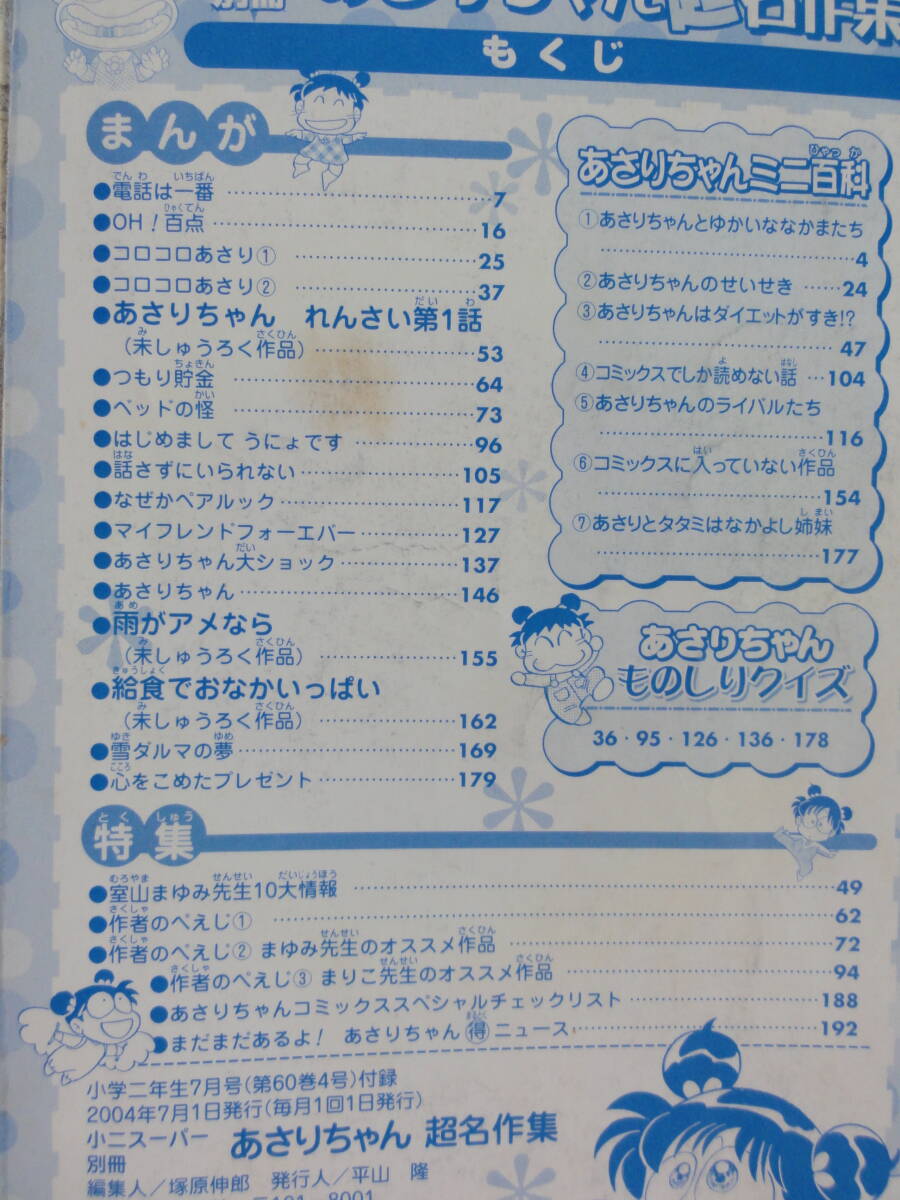 もくじ
まんが
●電話は一番 7
●OH!百点 16
●コロコロあさり① 25
●コロコロあさり② 37
●あさりちゃん れんさい第1話
(未しゅうろく作品) 53
●つもり貯金 64
●ベッドの怪 73
●はじめまして うにょです 96
●話さずにいられない 105
●なぜかペアルック 117
●マイフレンドフォーエバー 127
●あさりちゃん大ショック 137
●あさりちゃん 146
●雨がアメなら
(未しゅうろく作品) 155
●給食でおなかいっぱい
(未しゅうろく作品) 162
●雪ダルマの夢 169
●心をこめたプレゼント 179
あさりちゃんミニ百科
①あさりちゃんとゆかいななかまたち
4
②あさりちゃんのせいせき 24
③あさりちゃんはダイエットがすき!?
47
④コミックスでしか読めない話 104
⑤あさりちゃんのライバルたち
116
⑥コミックスに入っていない作品
154
⑦あさりとタタミはなかよし姉妹
177
あさりちゃん
ものしりクイズ
36・95・126・136・178
特集
●室山まゆみ先生10大情報 49
●作者のぺえじ① 62
●作者のぺえじ② まゆみ先生のオススメ作品 72
●作者のぺえじ③ まりこ先生のオススメ作品 94
●あさりちゃんコミックススペシャルチェックリスト 188
●まだまだあるよ! あさりちゃん得ニュース 192
小学二年生7月号(第60巻4号)付録
2004年7月1日発行(毎月1回1日発行)
小二スーパー
別冊
あさりちゃん 超名作集
編集人/塚原伸郎 発行人/平山 隆